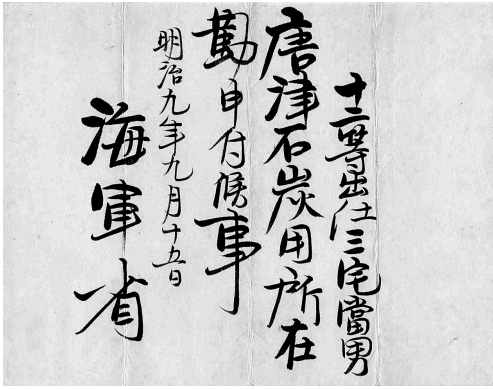 十二等出仕三宅當男
唐津石炭用所在
勤申付候事
明治九年九月十五日
海軍省